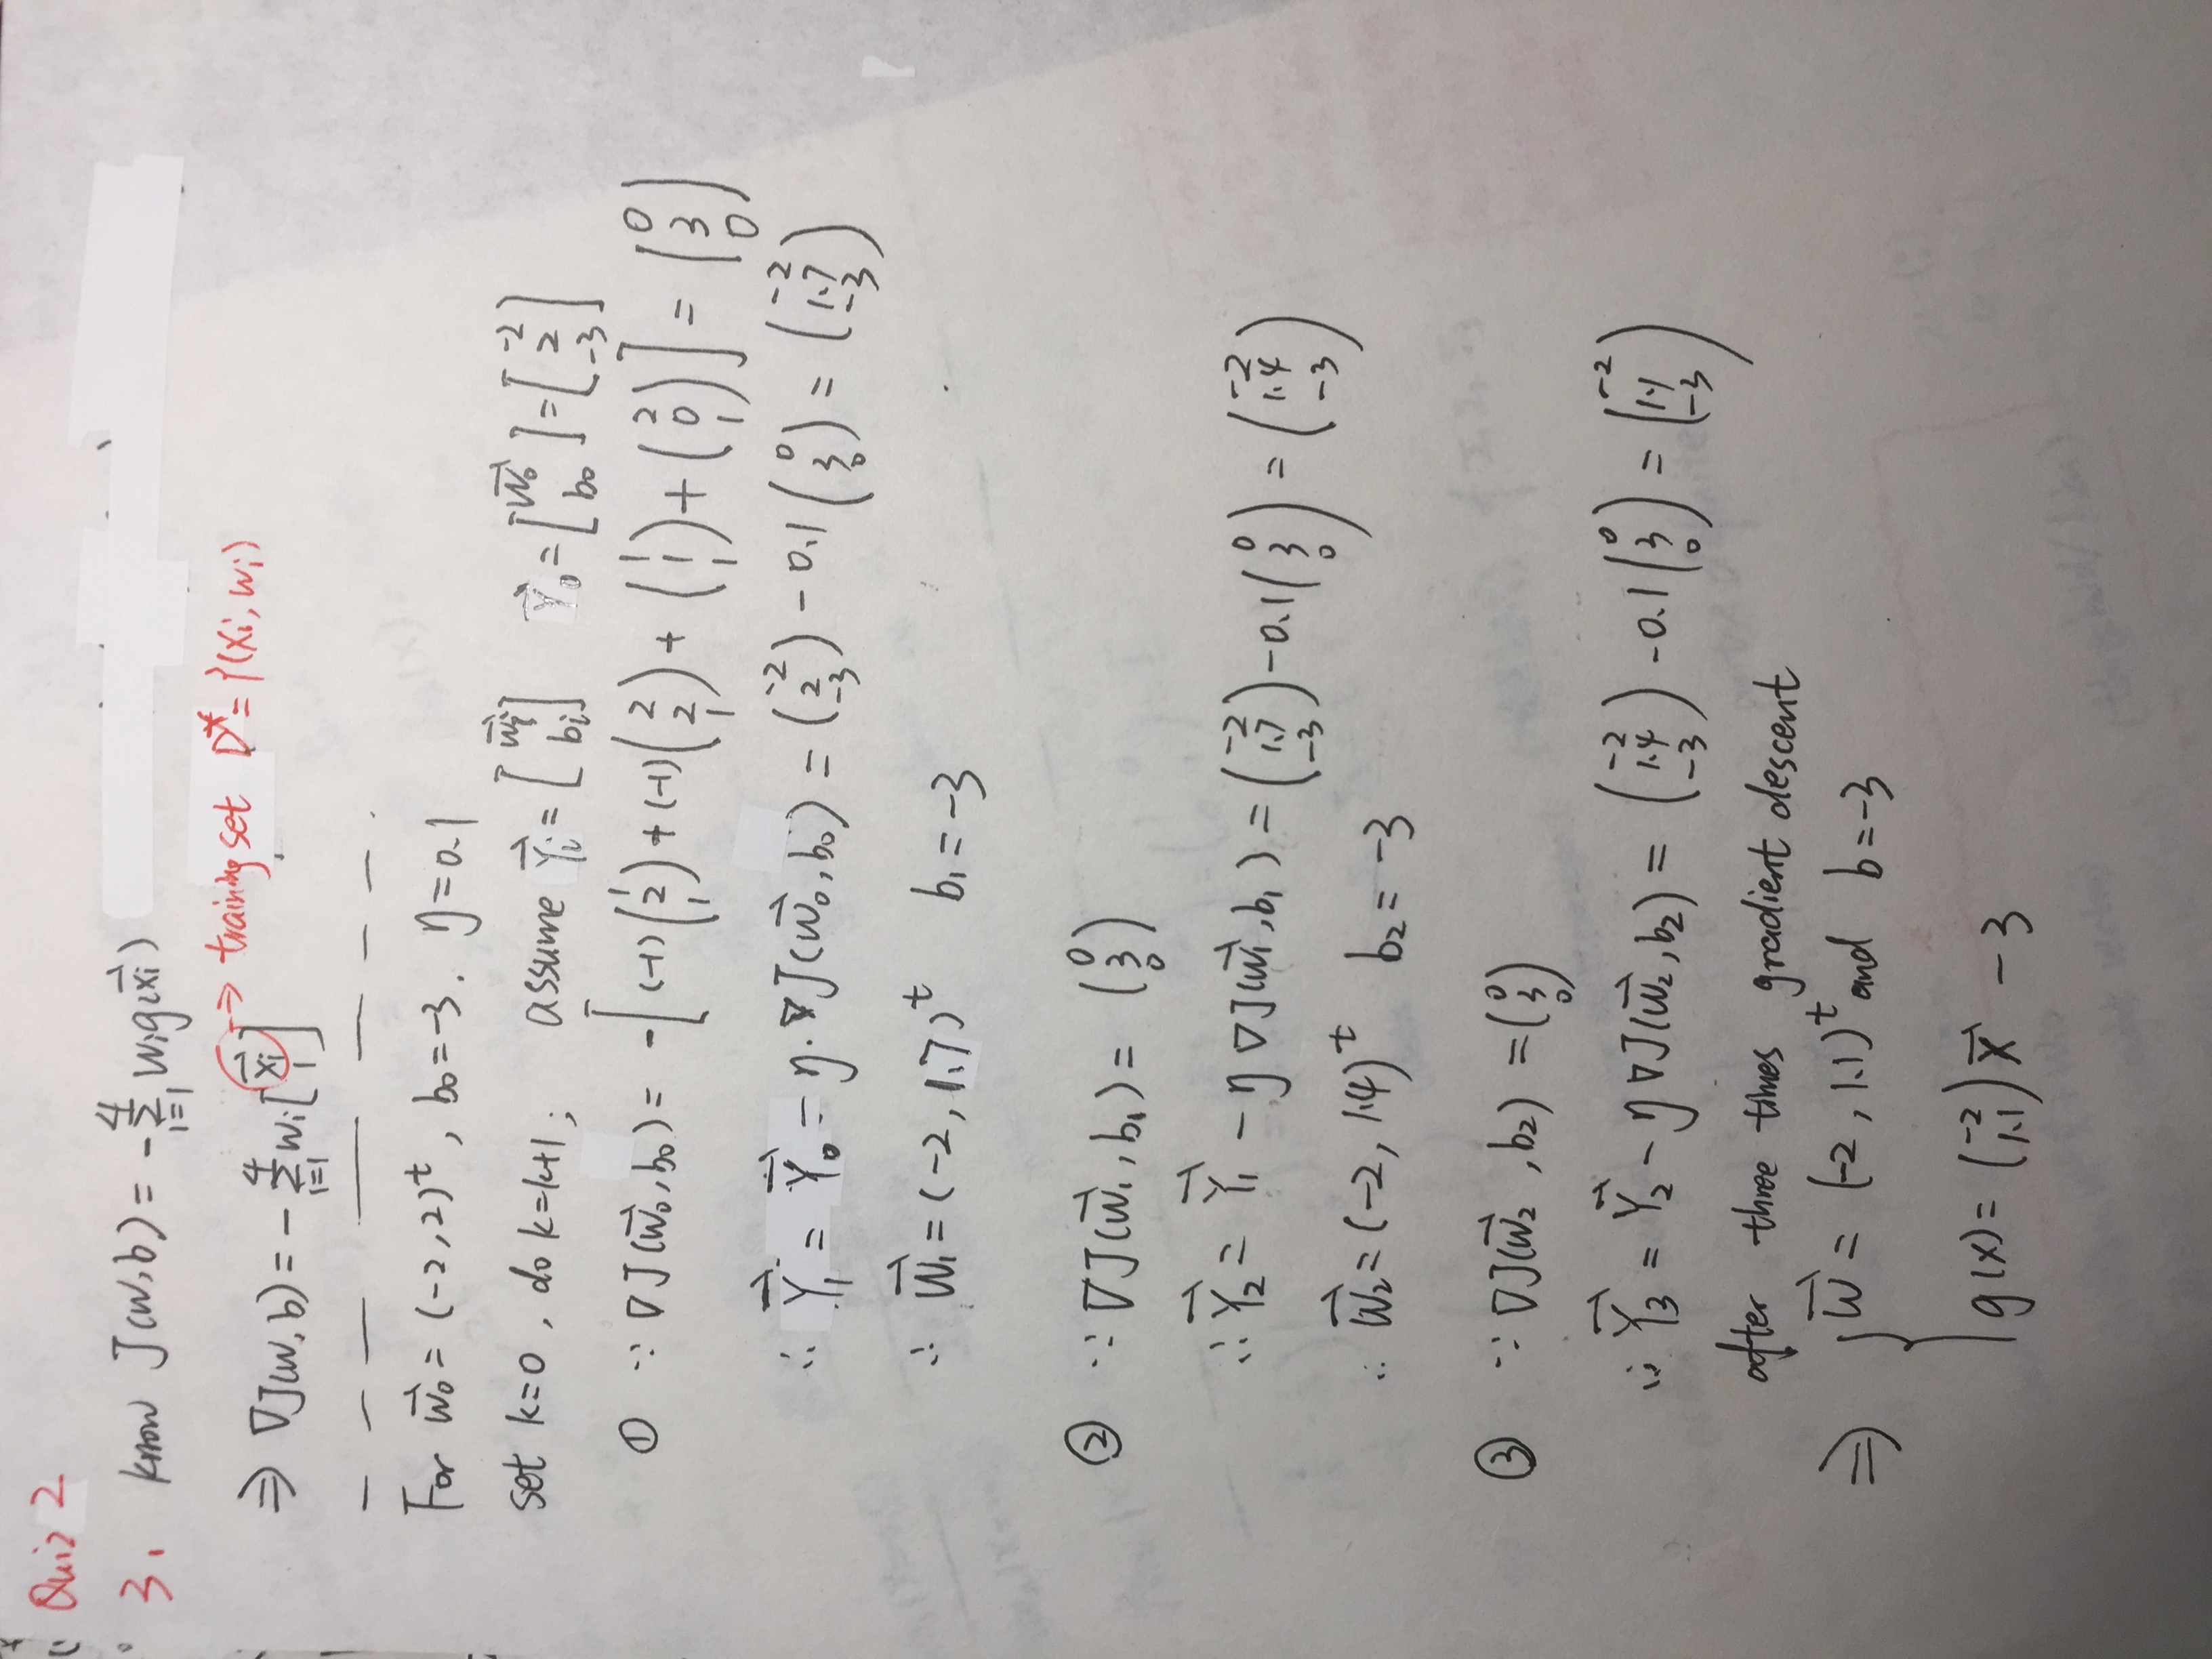 Quiz 2
3. know J(w,b) = -∑_{i=1}^{4} w_i g(x⃗_i)
⇒ ∇J(w,b) = -∑_{i=1}^{4} w_i [x⃗_i; 1] → training set D* = {(x_i, w_i)
For w⃗₀ = (-2, 2)^t, b₀ = -3. η = 0.1
set k=0, do k=k+1; assume Y⃗_i = [w⃗_i; b_i] Y⃗₀ = [w⃗₀; b₀] = [-2; 2; -3]
① ∵ ∇J(w⃗₀, b₀) = -[(-1)(1; 2; 1) + (-1)(2; 2; 1) + (1; 1; 1) + (2; 0; 1)] = (0; 3; 0)
∴ Y⃗₁ = Y⃗₀ - η·∇J(w⃗₀, b₀) = (-2; 2; -3) - 0.1(0; 3; 0) = (-2; 1.7; -3)
∴ w⃗₁ = (-2, 1.7)^t b₁ = -3
② ∵ ∇J(w⃗₁, b₁) = (0; 3; 0)
∴ Y⃗₂ = Y⃗₁ - η∇J(w⃗₁, b₁) = (-2; 1.7; -3) - 0.1(0; 3; 0) = (-2; 1.4; -3)
∴ w⃗₂ = (-2, 1.4)^t b₂ = -3
③ ∵ ∇J(w⃗₂, b₂) = (0; 3; 0)
∴ Y⃗₃ = Y⃗₂ - η∇J(w⃗₂, b₂) = (-2; 1.4; -3) - 0.1(0; 3; 0) = (-2; 1.1; -3)
after three times gradient descent
⇒ { w⃗ = (-2, 1.1)^t and b = -3
g(x) = (-2; 1.1) x⃗ - 3